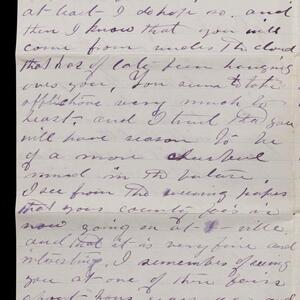 at least I do hope so. and
then I know that you will
come from under the cloud
that has of late been hanging
over you. You seem to take
afflictions very much to
heart, and I trust that you
will have season to be
of a more cheerful
mind in the future.
I see from the evening papers
that your county fair is
now going on at ville
and that it is very fine and
interesting. I remember of seeing
you at one of those fairs
about years ago and